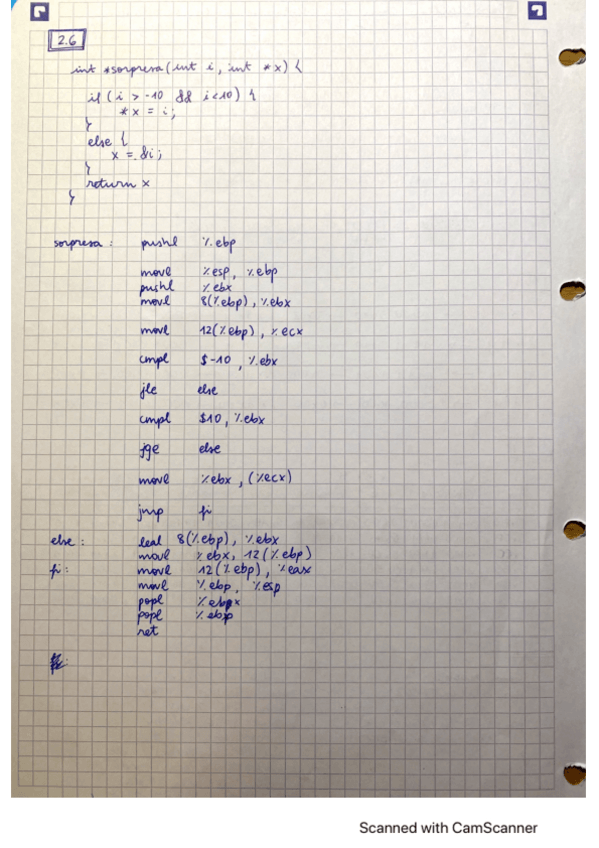 2.6
int *sorpresa(int i, int *x) {
if (i > -10 && i<10) {
*x = i;
}
else {
x = &i;
}
return x
}
sorpresa: pushl %ebp
movl %esp, %ebp
pushl %ebx
movl 8(%ebp), %ebx
movl 12(%ebp), %ecx
cmpl $-10, %ebx
jle else
cmpl $10, %ebx
jge else
movl %ebx, (%ecx)
jmp fi
else: leal 8(%ebp), %ebx
movl %ebx, 12(%ebp)
fi: movl 12(%ebp), %eax
movl %ebp, %esp
popl
popl
ret
Scanned with CamScanner